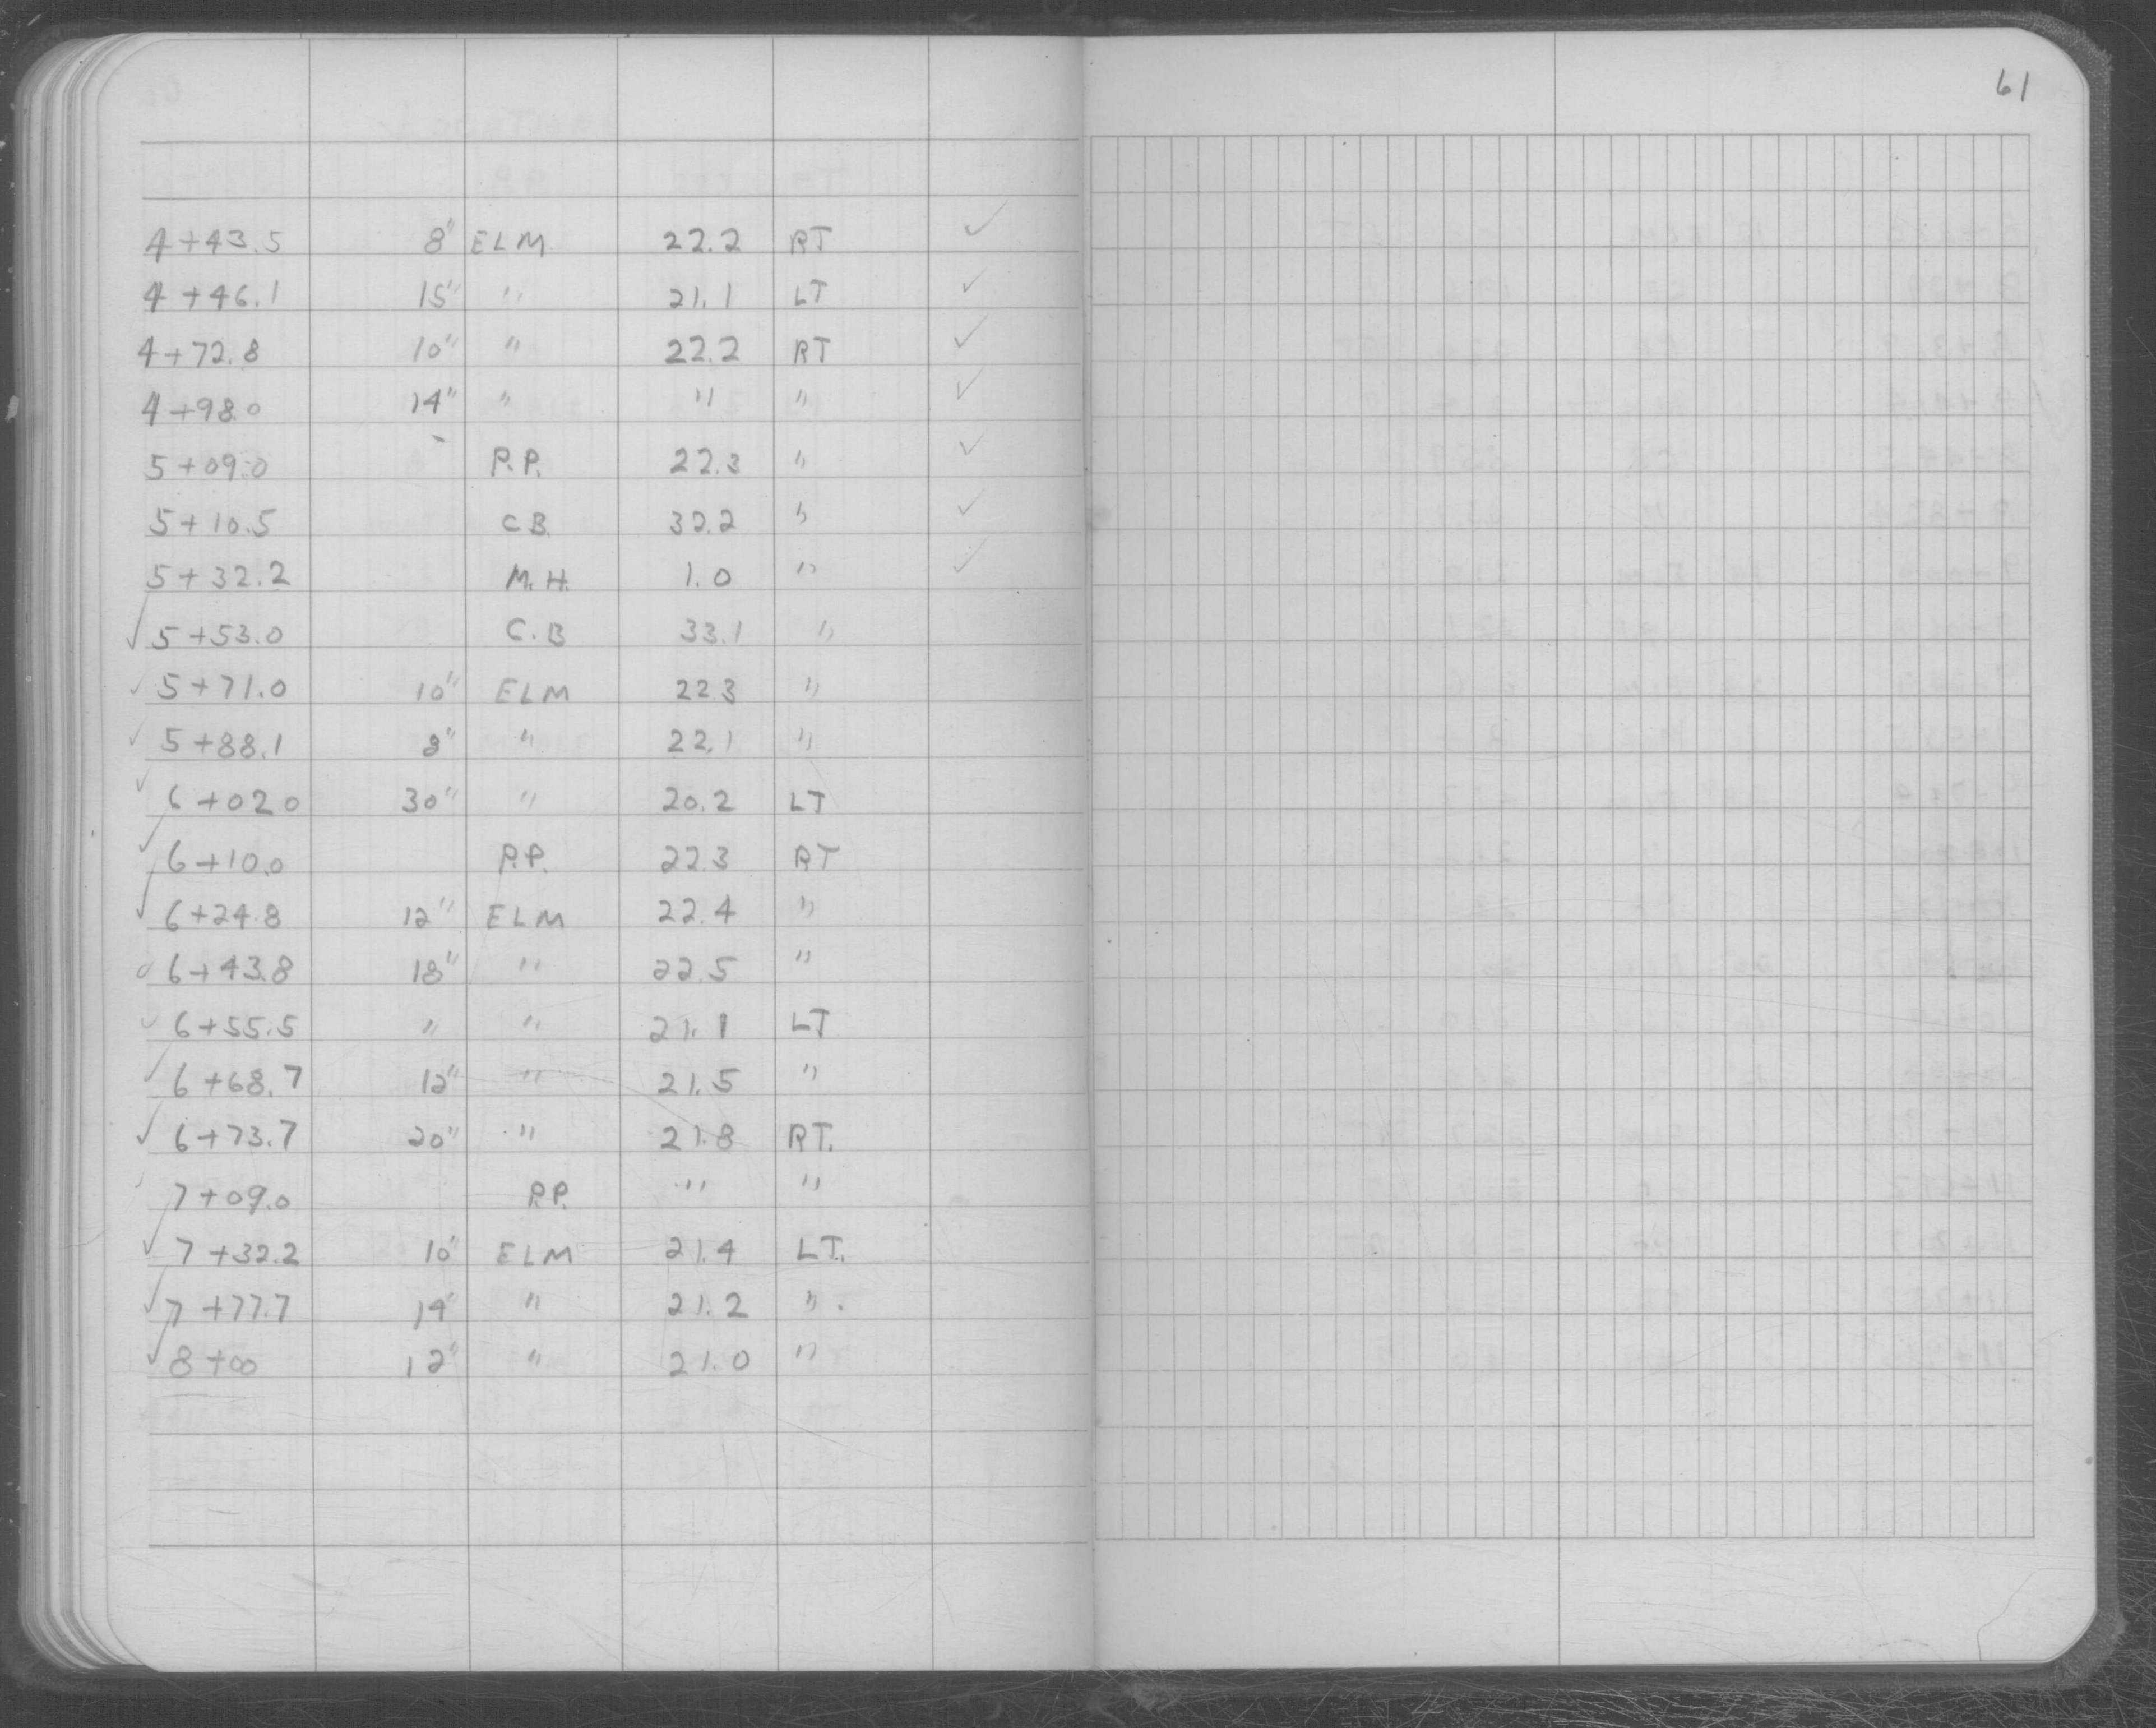 61
4+43.5 8" ELM 22.2 RT ✓
4+46.1 15" " 21.1 LT ✓
4+72.8 10" " 22.2 RT ✓
4+98.0 14" " " " ✓
5+09.0 P.P. 22.3 " ✓
5+10.5 C.B. 32.2 " ✓
5+32.2 M.H. 1.0 " ✓
✓ 5+53.0 C.B 33.1 "
✓ 5+71.0 10" ELM 22.3 "
✓ 5+88.1 8" " 22.1 "
✓ 6+02.0 30" " 20.2 LT
✓ 6+10.0 P.P. 22.3 RT
✓ 6+24.8 12" ELM 22.4 "
✓ 6+43.8 18" " 22.5 "
✓ 6+55.5 " " 21.1 LT
✓ 6+68.7 12" " 21.5 "
✓ 6+73.7 20" " 21.8 RT.
✓ 7+09.0 P.P. " "
✓ 7+32.2 10" ELM 21.4 LT.
✓ 7+77.7 14" " 21.2 "
✓ 8+00 12" " 21.0 "